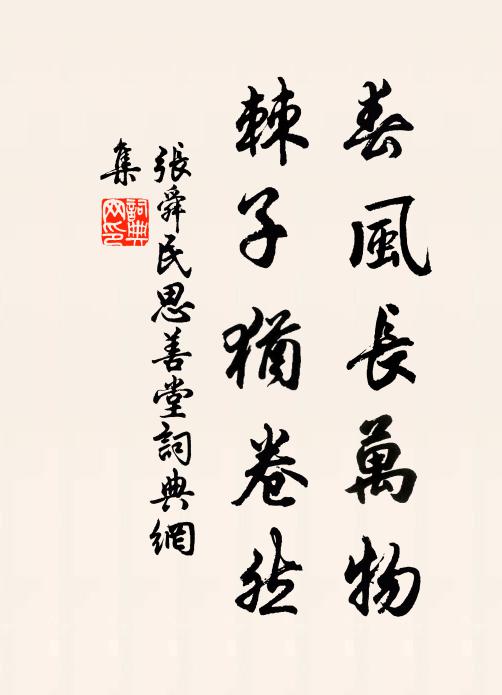 春風長萬物
棘子猶卷然
張舜民思善堂詞典網
集
詞典
网印